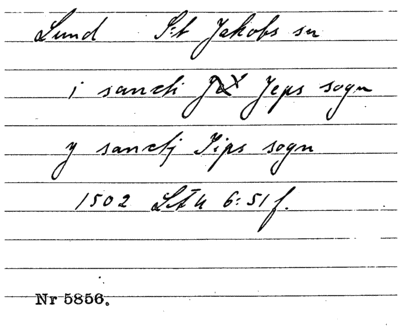 Lund S:t Jakobs sn
i sancti Jeps sogn
y sanctj Jips sogn
1502 LÅU 6:51 f.
Nr 5856.